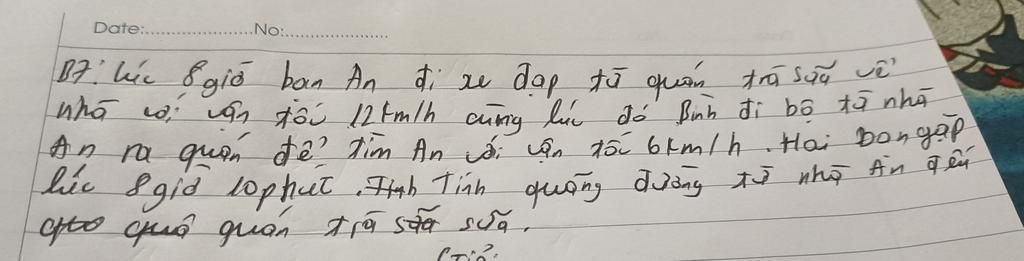 Date:....................No:...................
B7: lúc 8 giờ bạn An đi xe đạp từ quán trà sữa về
nhà với vận tốc 12 km/h cũng lúc đó Bình đi bộ từ nhà
An ra quán để tìm An với vận tốc 6km/h. Hai bạn gặp
lúc 8 giờ 10 phút. Tính quãng đường từ nhà An đến
quán trà sữa.